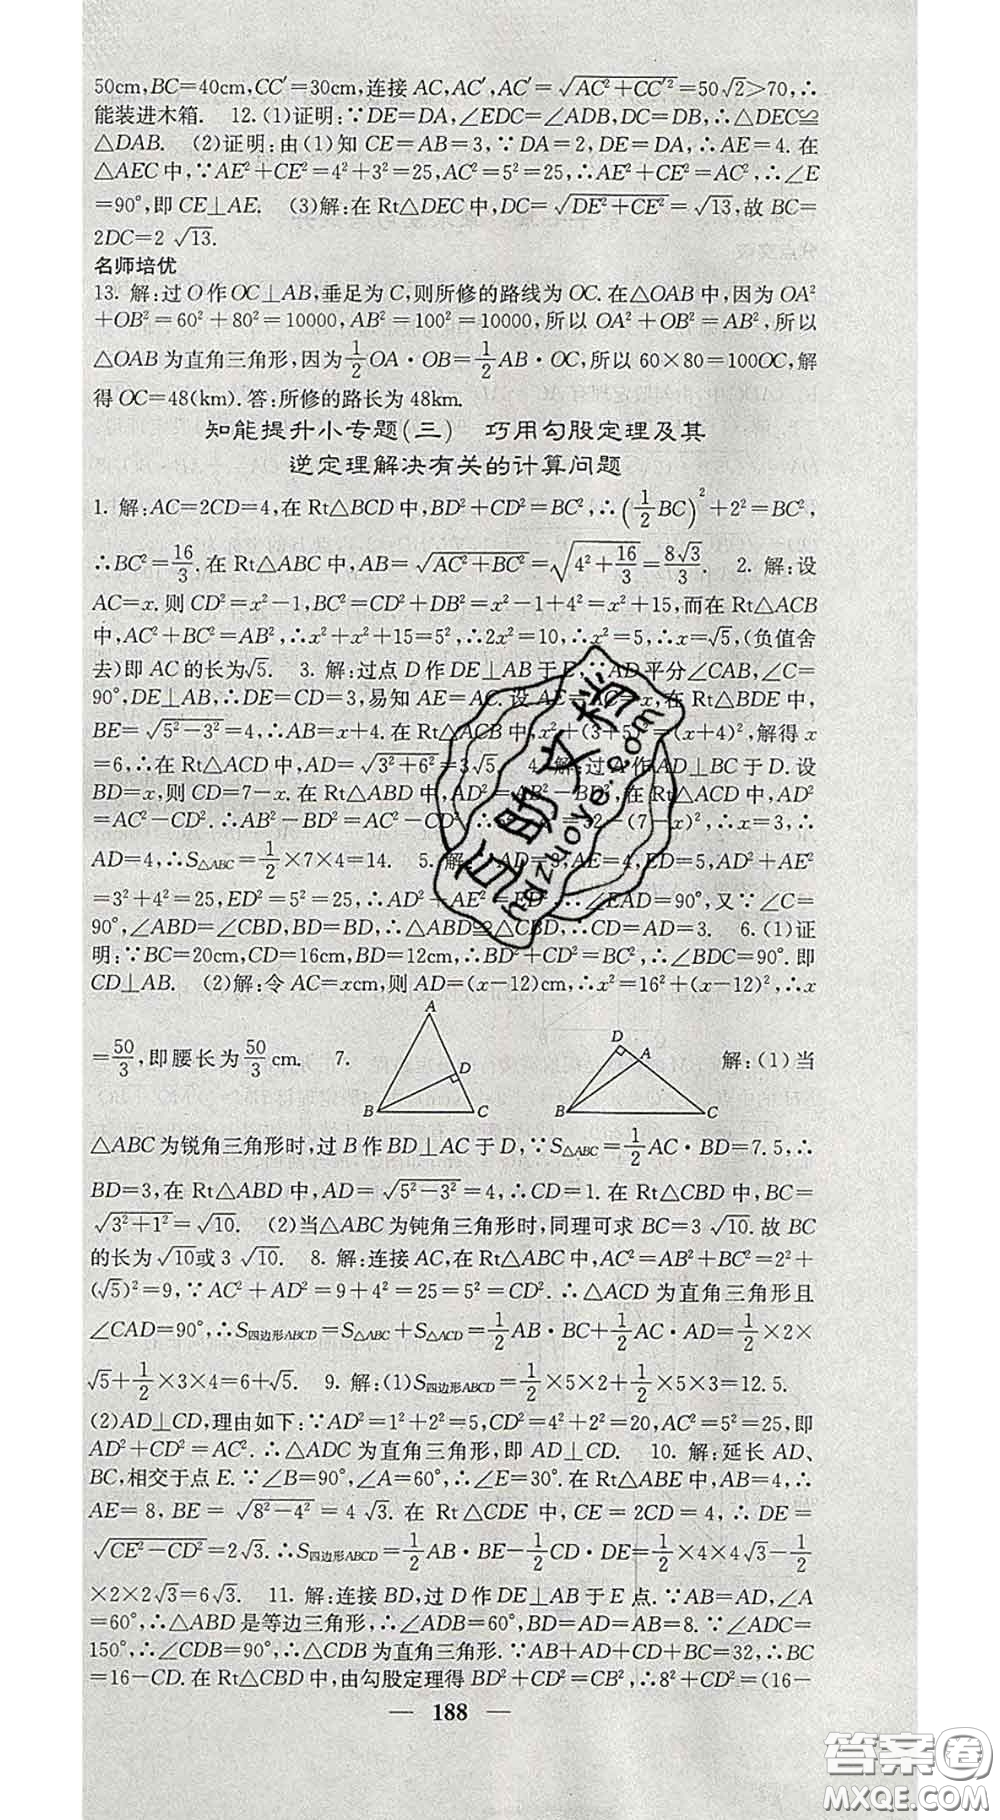 50cm,BC=40cm,CC′=30cm,连接 AC,AC′,AC′=√(AC²+CC′²)=50√2>70,∴
能装进木箱. 12.(1)证明:∵DE=DA,∠EDC=∠ADB,DC=DB,∴△DEC≌
△DAB. (2)证明:由(1)知 CE=AB=3,∵DA=2,DE=DA,∴AE=4.在
△AEC 中,∵AE²+CE²=4²+3²=25,AC²=5²=25,∴AE²+CE²=AC²,∴∠E
=90°,即 CE⊥AE. (3)解:在 Rt△DEC 中,DC=√(DE²+CE²)=√13,故 BC=
2DC=2√13.
名师培优
13. 解:过 O 作 OC⊥AB,垂足为 C,则所修的路线为 OC.在△OAB 中,因为 OA²
+OB²=60²+80²=10000,AB²=100²=10000,所以 OA²+OB²=AB²,所以
△OAB 为直角三角形,因为1/2 OA·OB=1/2 AB·OC,所以 60×80=100OC,解
得 OC=48(km).答:所修的路长为 48km.
知能提升小专题(三) 巧用勾股定理及其
逆定理解决有关的计算问题
1. 解:AC=2CD=4,在 Rt△BCD 中,BD²+CD²=BC²,∴(1/2 BC)²+2²=BC²,
∴BC²=16/3.在 Rt△ABC 中,AB=√(AC²+BC²)=√(4²+16/3)=8√3/3. 2. 解:设
AC=x.则 CD²=x²-1,BC²=CD²+DB²=x²-1+4²=x²+15,而在 Rt△ACB
中,AC²+BC²=AB²,∴x²+x²+15=5²,∴2x²=10,∴x²=5,∴x=√5,(负值舍
去)即 AC 的长为√5. 3. 解:过点 D 作 DE⊥AB 于 E,∵AD 平分∠CAB,∠C=
90°,DE⊥AB,∴DE=CD=3,易知 AE=AC.设 AE=AC=x,在 Rt△BDE 中,
BE=√(5²-3²)=4,∴AB=x+4.在 Rt△ACB 中,x²+(3+5)²=(x+4)²,解得 x
=6,∴在 Rt△ACD 中,AD=√(3²+6²)=3√5. 4. 解:过 A 作 AD⊥BC 于 D.设
BD=x,则 CD=7-x.在 Rt△ABD 中,AD²=AB²-BD²,在 Rt△ACD 中,AD²
=AC²-CD².∴AB²-BD²=AC²-CD² 32-(7-x)²,∴x=3,∴
AD=4,∴S△ABC=1/2×7×4=14. 5. 解: AD=3,AE=4,ED=5,AD²+AE²
=3²+4²=25,ED²=5²=25,∴AD²+AE²=ED²,∴∠EAD=90°,又∵∠C=
90°,∠ABD=∠CBD,BD=BD,∴△ABD≌△CBD,∴CD=AD=3. 6.(1)证
明:∵BC=20cm,CD=16cm,BD=12cm,∴BD²+CD²=BC²,∴∠BDC=90°.即
CD⊥AB. (2)解:令 AC=xcm,则 AD=(x-12)cm,∴x²=16²+(x-12)²,∴x
=50/3,即腰长为50/3cm. 7. A D B C D A B C 解:(1)当
△ABC 为锐角三角形时,过 B 作 BD⊥AC 于 D,∵S△ABC=1/2 AC·BD=7.5,∴
BD=3,在 Rt△ABD 中,AD=√(5²-3²)=4,∴CD=1.在 Rt△CBD 中,BC=
√(3²+1²)=√10. (2)当△ABC 为钝角三角形时,同理可求 BC=3√10.故 BC
的长为√10或 3√10. 8. 解:连接 AC,在 Rt△ABC 中,AC²=AB²+BC²=2²+
(√5)²=9,∵AC²+AD²=9+4²=25=5²=CD².∴△ACD 为直角三角形且
∠CAD=90°,∴S四边形ABCD=S△ABC+S△ACD=1/2 AB·BC+1/2 AC·AD=1/2×2×
√5+1/2×3×4=6+√5. 9. 解:(1)S四边形ABCD=1/2×5×2+1/2×5×3=12.5.
(2)AD⊥CD,理由如下:∵AD²=1²+2²=5,CD²=4²+2²=20,AC²=5²=25,即
AD²+CD²=AC².∴△ADC 为直角三角形,即 AD⊥CD. 10. 解:延长 AD、
BC,相交于点 E.∵∠B=90°,∠A=60°,∴∠E=30°.在 Rt△ABE 中,AB=4,∴
AE=8,BE=√(8²-4²)=4√3.在 Rt△CDE 中,CE=2CD=4,∴DE=
√(CE²-CD²)=2√3.∴S四边形ABCD=1/2 AB·BE-1/2 CD·DE=1/2×4×4√3-1/2
×2×2√3=6√3. 11. 解:连接 BD,过 D 作 DE⊥AB 于 E 点.∵AB=AD,∠A
=60°,∴△ABD 是等边三角形,∴∠ADB=60°,BD=AD=AB=8.∵∠ADC=
150°,∴∠CDB=90°,∴△CDB 为直角三角形.∵AB+AD+CD+BC=32,∴BC
=16-CD.在 Rt△CBD 中,由勾股定理得 BD²+CD²=CB²,∴8²+CD²=(16-
— 188 —
互助文档
hdzuoye.com
答案圈
MXQE.COM